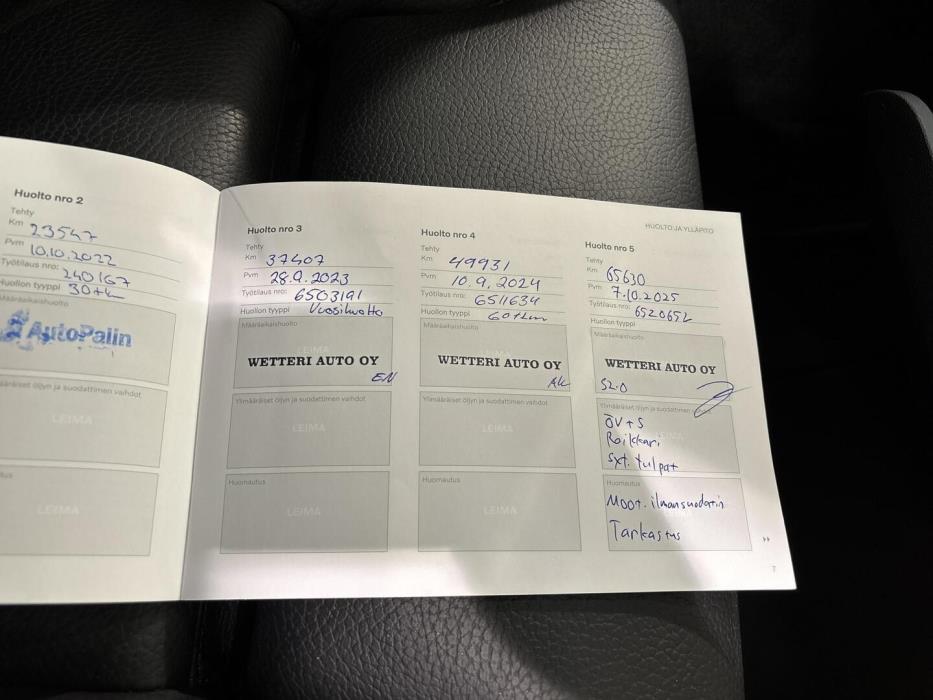 Huolto nro 2
Tehty
Km 23547
Pvm 10.10.2022
Työtilaus nro: 240167
Huollon tyyppi 30tk
Määräaikaishuolto
AutoPalin
Ylimääräiset öljyn ja suodattimen vaihdot
LEIMA
LEIMA
Huolto nro 3
Tehty
Km 37407
Pvm 28.9.2023
Työtilaus nro: 6503191
Huollon tyyppi Vuosihuolto
Määräaikaishuolto
WETTERI AUTO OY
EN
Ylimääräiset öljyn ja suodattimen vaihdot
LEIMA
Huomautus
LEIMA
Huolto nro 4
Tehty
Km 49931
Pvm 10.9.2024
Työtilaus nro: 6511634
Huollon tyyppi 60tkm
Määräaikaishuolto
WETTERI AUTO OY
AK
Ylimääräiset öljyn ja suodattimen vaihdot
LEIMA
Huomautus
LEIMA
HUOLTO JA YLLÄPITO
Huolto nro 5
Tehty
Km 65630
Pvm 7.10.2025
Työtilaus nro: 6520652
Huollon tyyppi
Määräaikaishuolto
WETTERI AUTO OY
S2.0
Ylimääräiset öljyn ja suodattimen
ÖV+S
Roikkari
sxt. tulpat
Huomautus
Moot. ilmansuodatin
Tarkastus
7